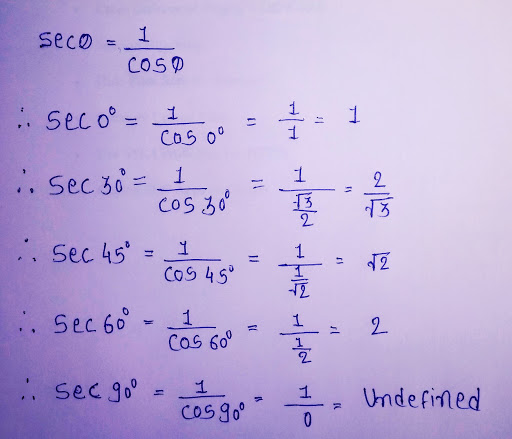 secθ = 1/cosθ
∴ sec 0° = 1/cos 0° = 1/1 = 1
∴ sec 30° = 1/cos 30° = 1/(√3/2) = 2/√3
∴ sec 45° = 1/cos 45° = 1/(1/√2) = √2
∴ sec 60° = 1/cos 60° = 1/(1/2) = 2
∴ sec 90° = 1/cos 90° = 1/0 = Undefined